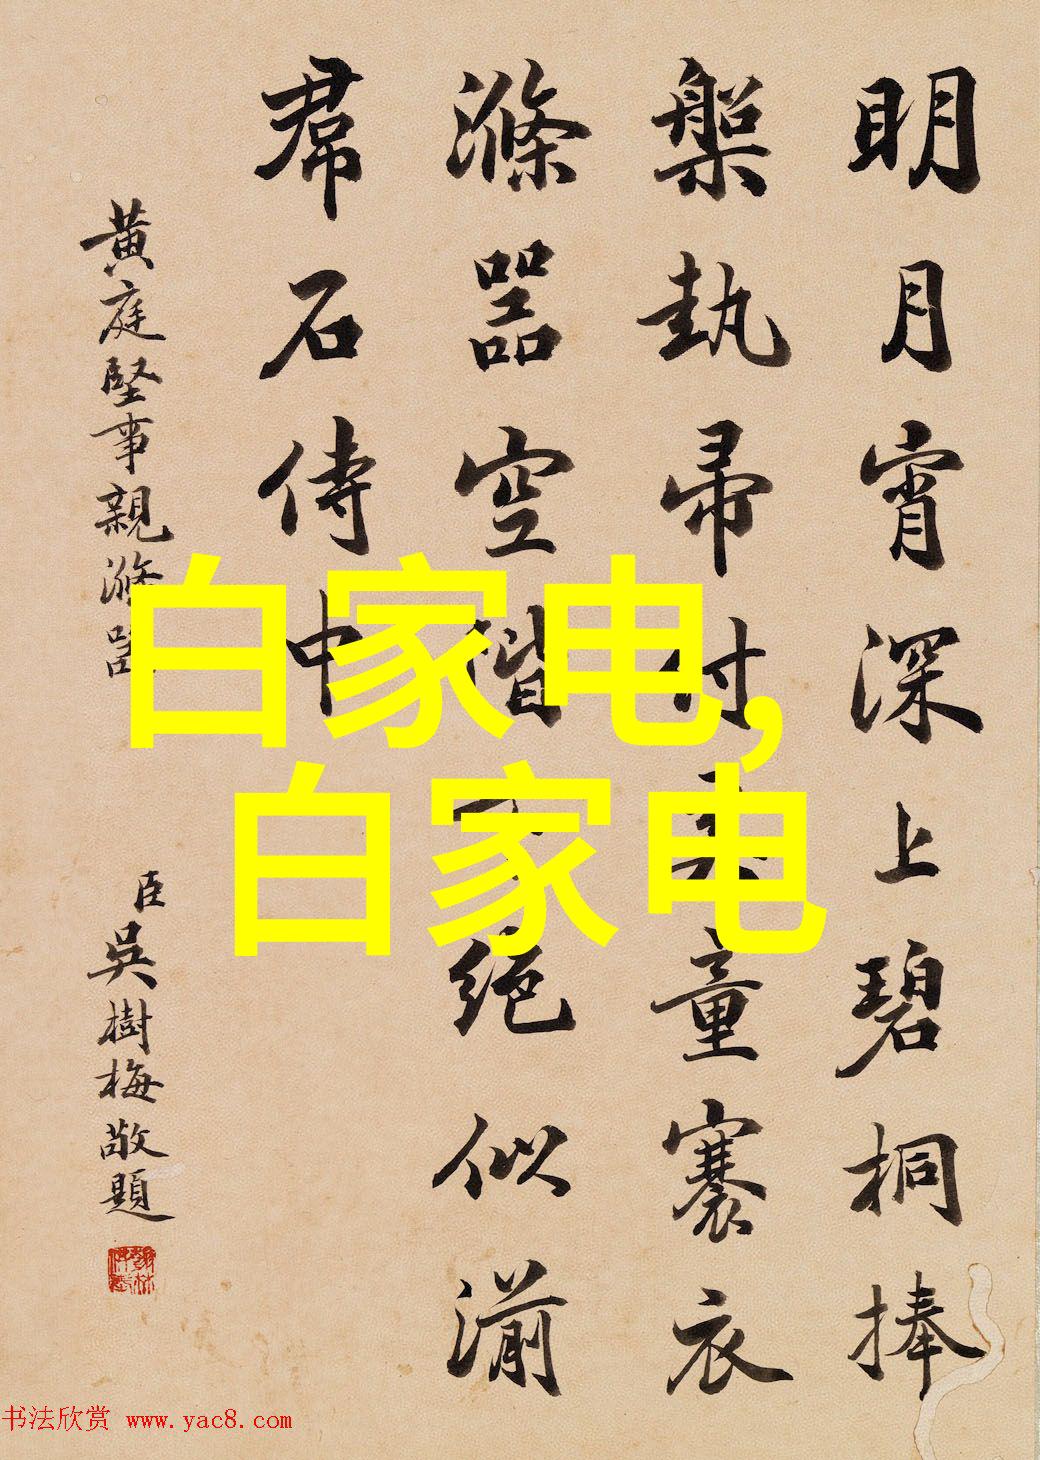 明月宵深上碧桐捧
槃執帚付奚童褰衣
滌器空階下絕似湔
帬石侍中
黃庭堅事親滌器
臣吳樹梅敬題
白家电,
白家电
书法欣赏 www.yac8.com